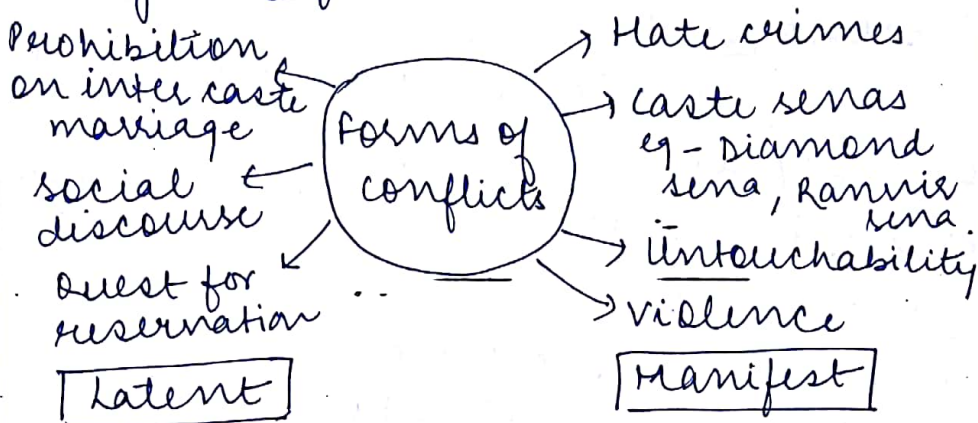 Prohibition
on inter caste
marriage
social
discourse
Quest for
reservation
Latent
Forms of
conflicts
Hate crimes
caste senas
eg - Diamond
sena, Ranvir
sena
Untouchability
violence
Manifest